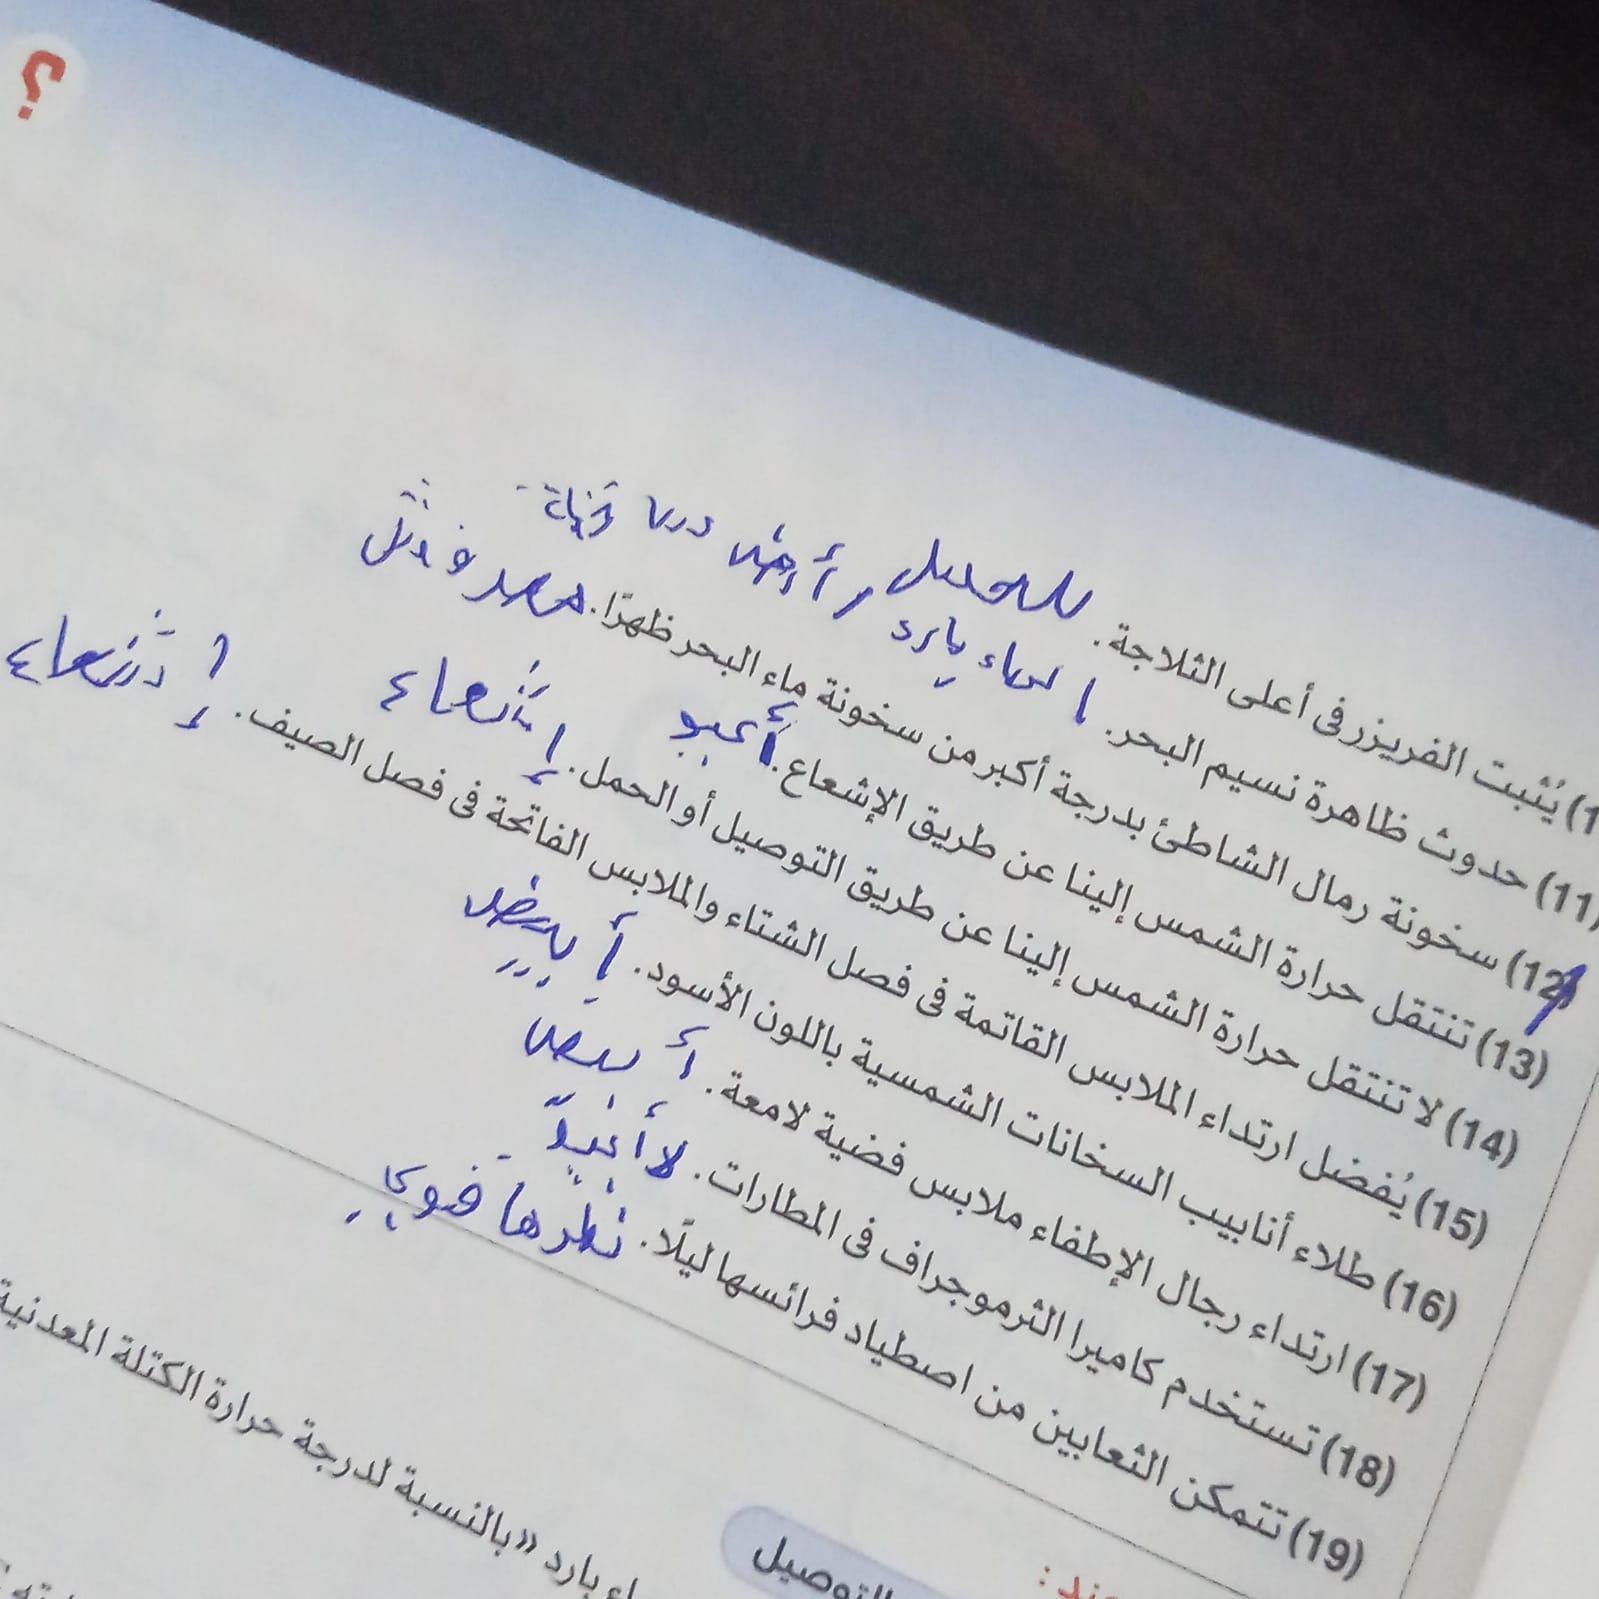 ؟
يُثبت الفريزر فى أعلى الثلاجة.
(11) حدوث ظاهرة نسيم البحر. بارد
(12) سخونة رمال الشاطئ بدرجة أكبر من سخونة ماء البحر ظهرًا.
(13) تنتقل حرارة الشمس إلينا عن طريق الإشعاع.
(14) لا تنتقل حرارة الشمس إلينا عن طريق التوصيل أو الحمل. إشعاع
(15) يُفضل ارتداء الملابس القاتمة فى فصل الشتاء والملابس الفاتحة فى فصل الصيف. إشعاع
(16) طلاء أنابيب السخانات الشمسية باللون الأسود. أبيض
(17) ارتداء رجال الإطفاء ملابس فضية لامعة. أبيض
(18) تستخدم كاميرا الثرموجراف فى المطارات.
(19) تتمكن الثعابين من اصطياد فرائسها ليلًا. نظرها قوي
عند :
التوصيل
بارد «بالنسبة لدرجة حرارة الكتلة المعدنية